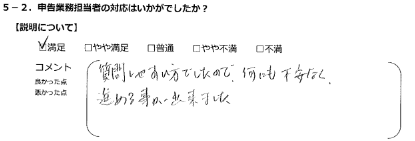 5-2．申告業務担当者の対応はいかがでしたか？
【説明について】
☑満足 □やや満足 □普通 □やや不満 □不満
コメント
良かった点
悪かった点
質問しやすい方でしたので、何にも不安なく、
進める事が出来ました